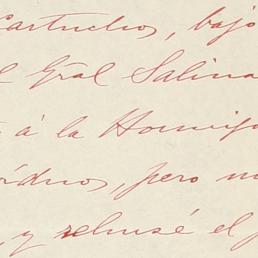 Cartuchos, bajo
Gral Salina
á la Hormiga
pero
, y rehusé el